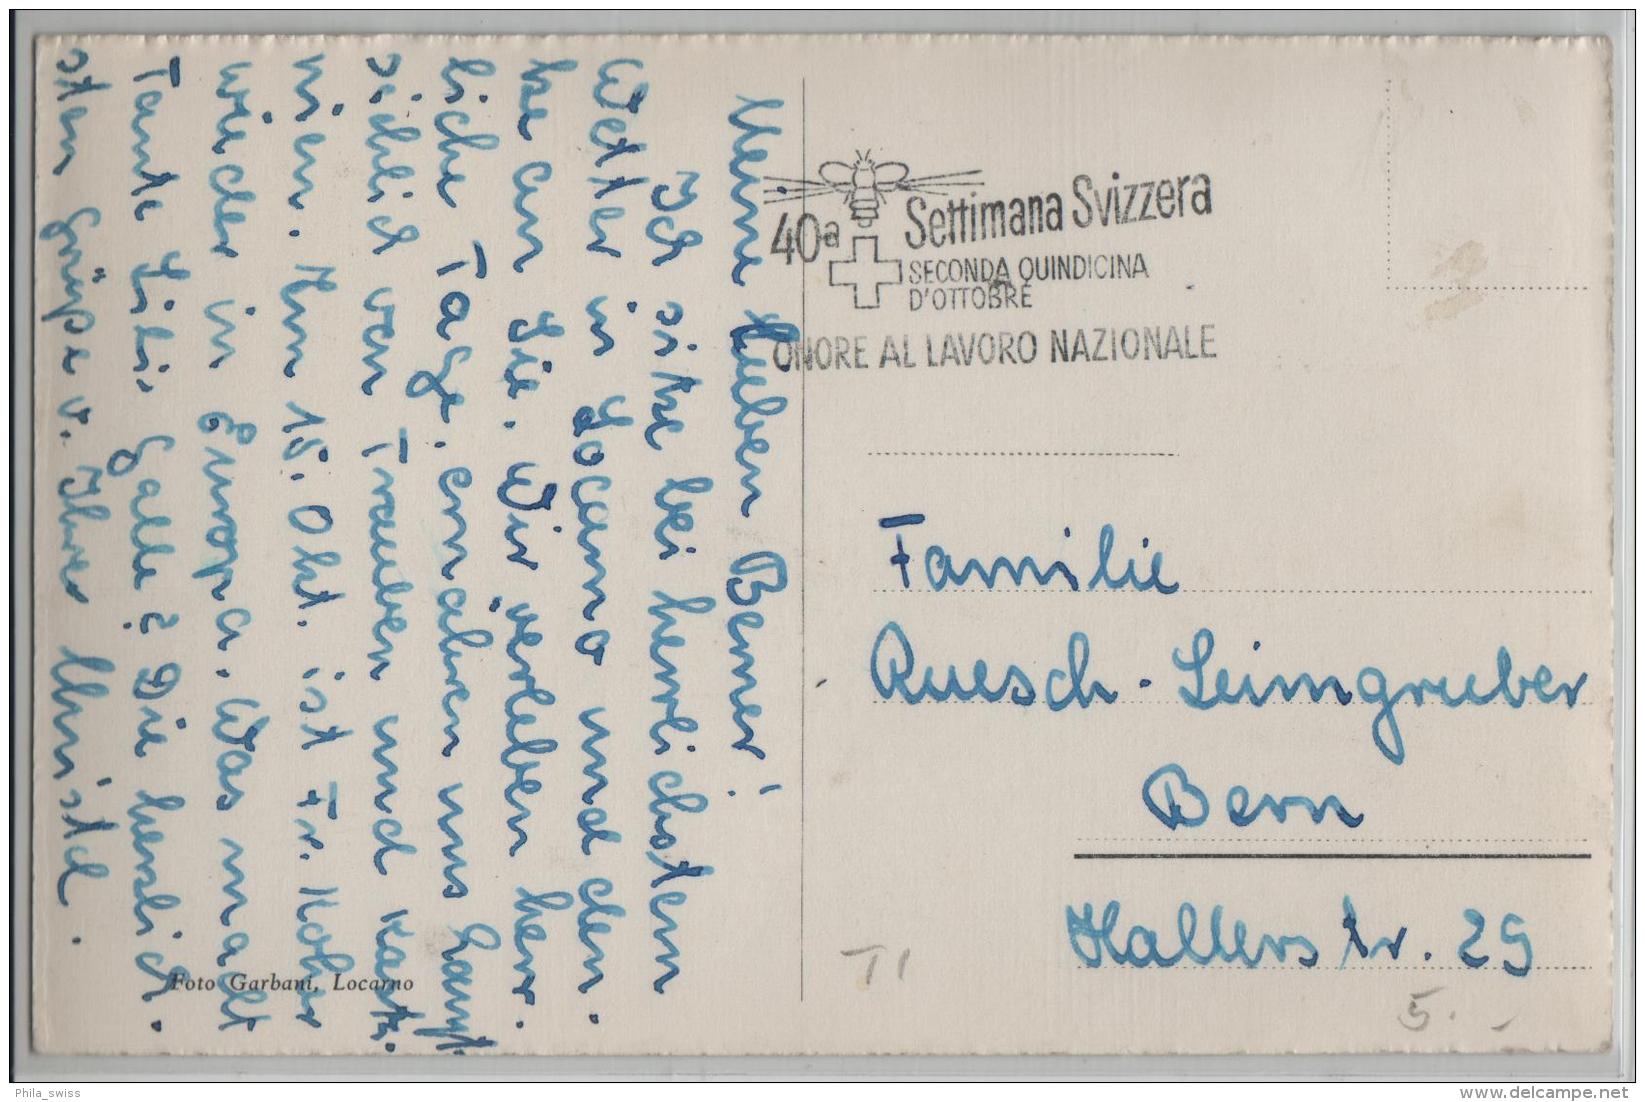 Meine lieben Berner!
Ich sitze bei herrlichstem
Wetter in Locarno und den-
ke an Sie. Wir verleben herr-
liche Tage, ernähren uns haupt-
sächlich von Trauben und Kasta-
nien. Am 15. Okt. ist Fr. Kohler
wieder in Europa. Was macht
Tante Lilis Galle? Die herzlich-
sten Grüsse v. Ihrer
Foto Garbani, Locarno
40a Settimana Svizzera
SECONDA QUINDICINA
D'OTTOBRE
ONORE AL LAVORO NAZIONALE
Familie
Ruesch-Leimgruber
Bern
Hallerstr. 29
TI
5.-
Phila_swiss
delcampe.net